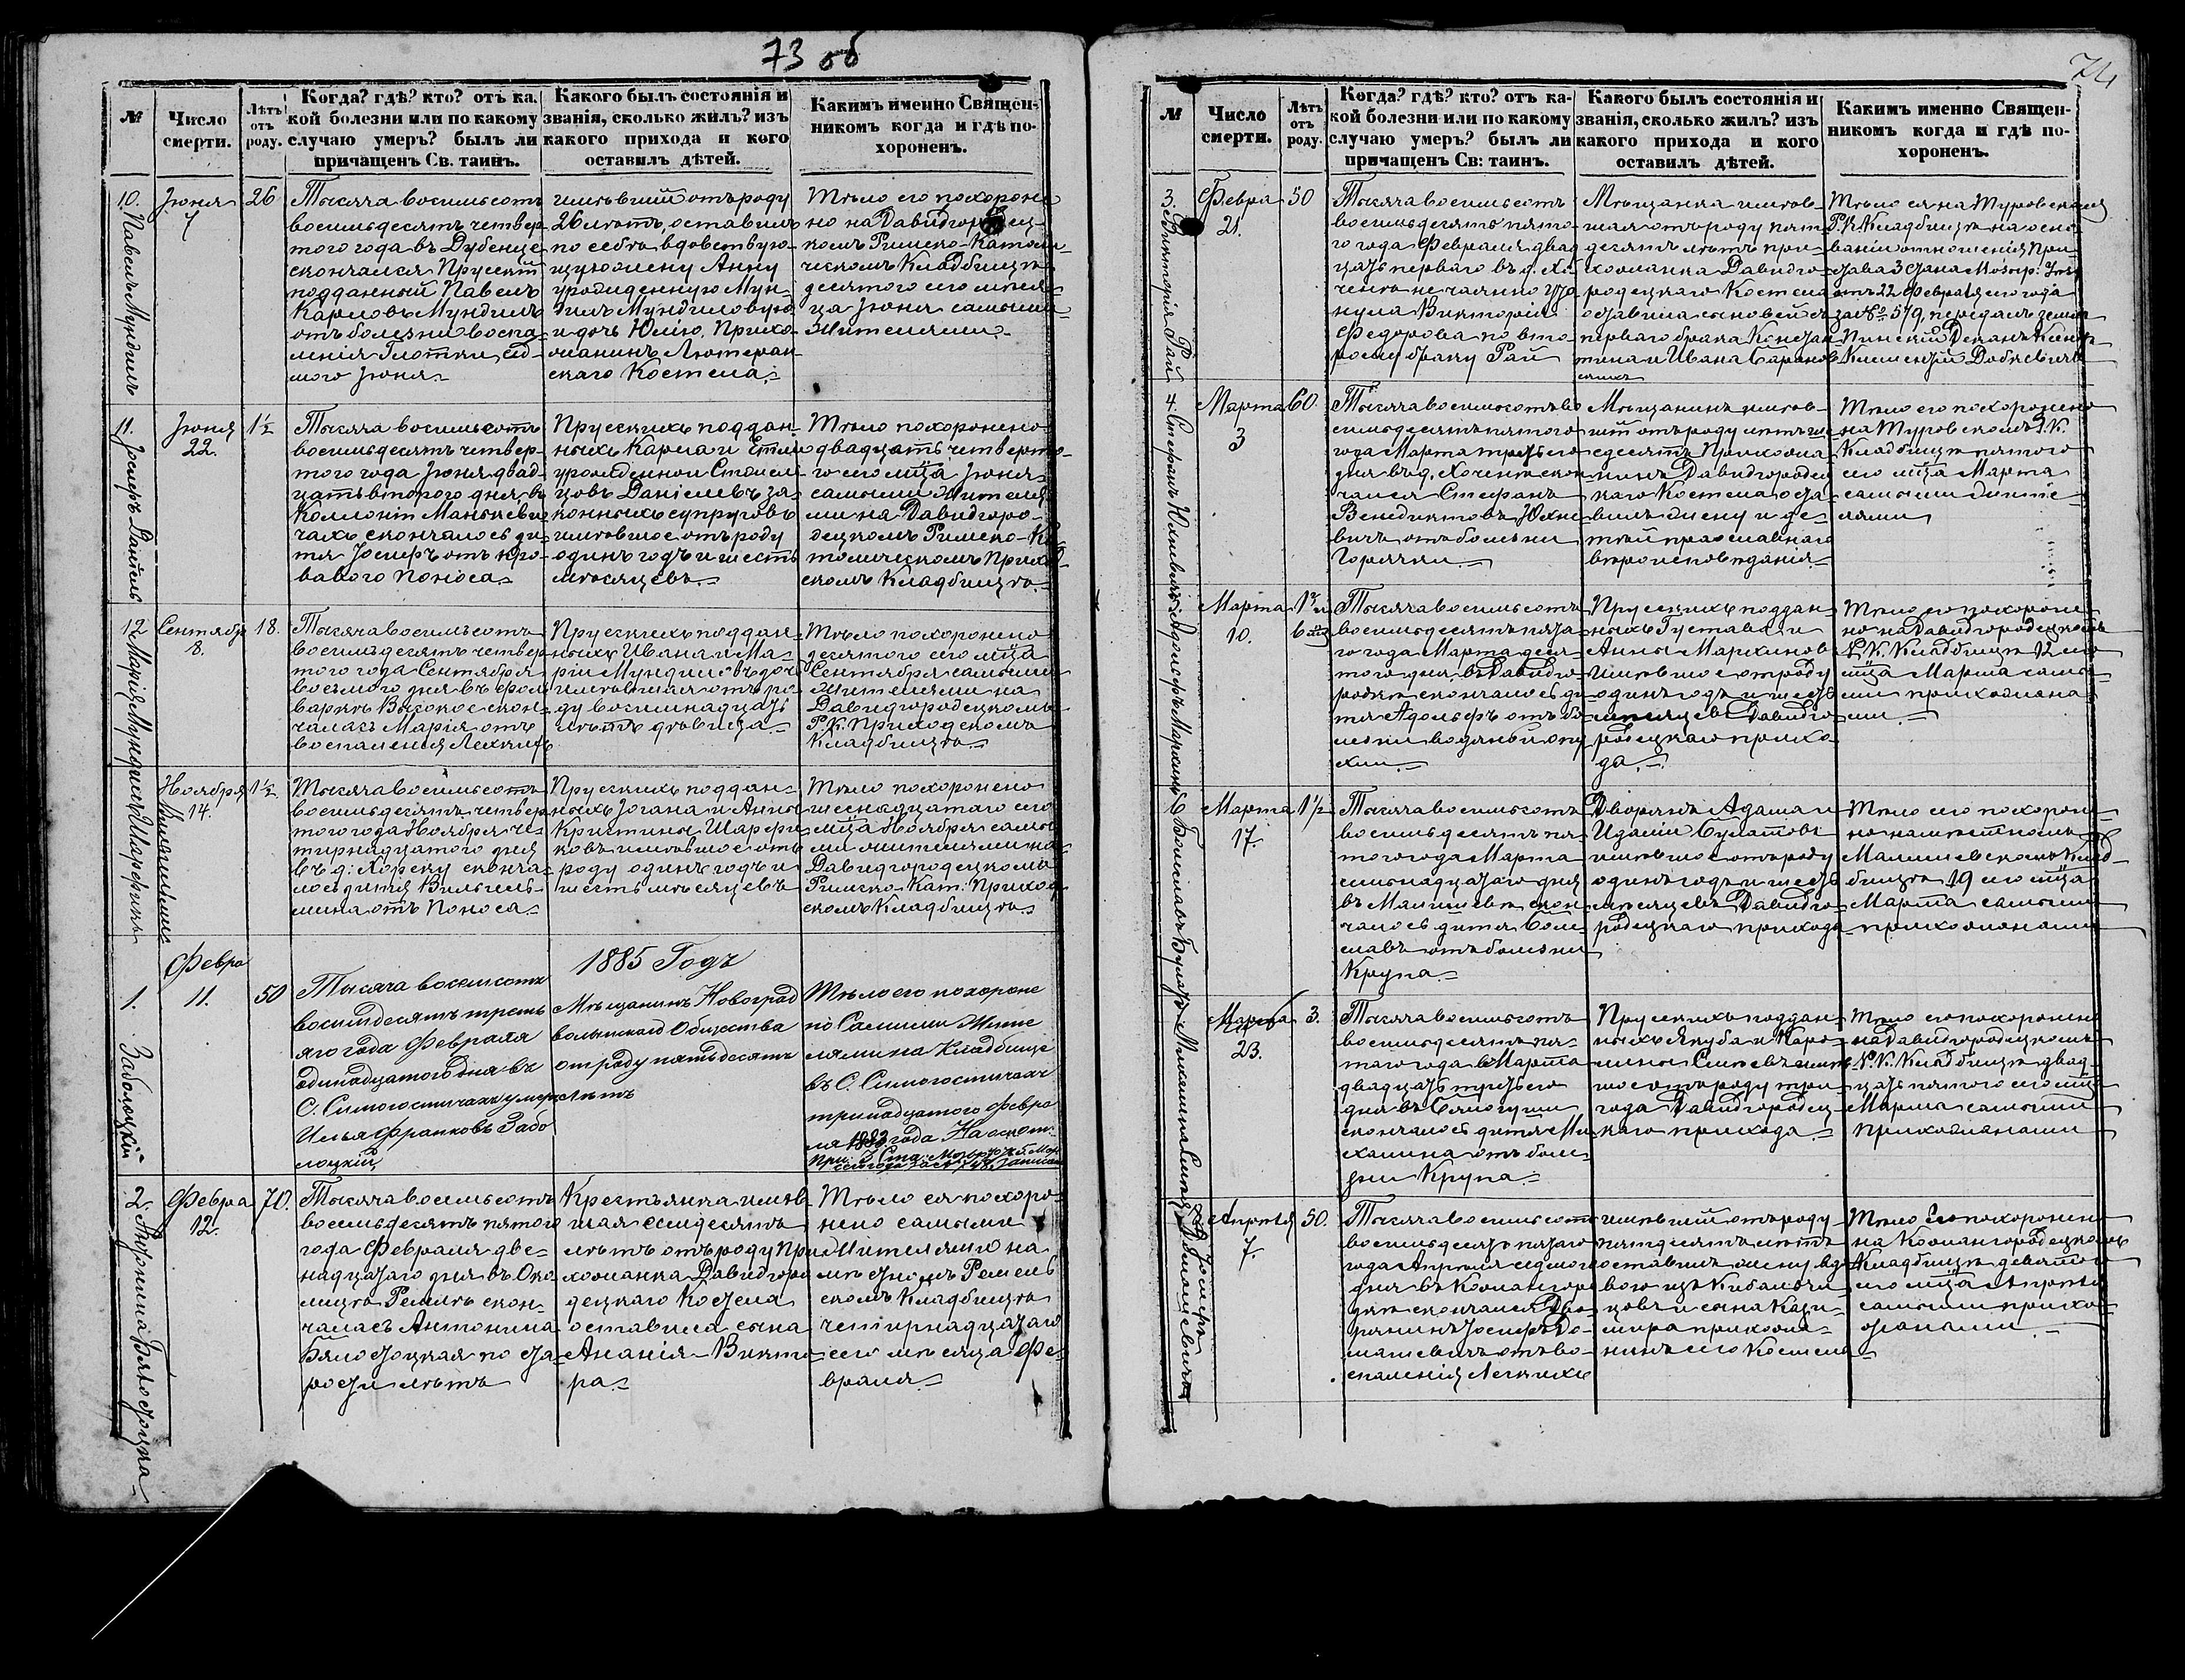 73 об
№
Число
смерти.
Лѣтъ
отъ
роду.
Когда? гдѣ? кто? отъ ка-
кой болезни или по какому
случаю умеръ? былъ ли
причащенъ Св. таинъ.
Какого былъ состоянія и
званія, сколько жилъ? изъ
какого прихода и кого
оставилъ дѣтей.
Какимъ именно Священ-
никомъ когда и гдѣ по-
хороненъ.
10.
Павелъ Мундиль
Іюня
7
26
Тысяча восемьсотъ
восемьдесятъ четвер
того года въ Дубенце
скончался Прусскій
подданный Павелъ
Карловъ Мундиль
отъ болезни воспа-
ленія Глотки, сед-
мого Іюня
имѣвшій отъ роду
26 лѣтъ, оставилъ
по себѣ вдовствую-
щую жену Анну
урожденную Мун-
диль Мундилову
и дочь Юлію. Прихо-
жанинъ Лютеран-
скаго Костела.
Тѣло его похороне
но на Давидгородец-
комъ Римско-Католи-
ческомъ Кладбищѣ
десятого сего меся-
ца Іюня самыми
Жителями
11.
Іосифъ Даніель
Іюня
22.
1½
Тысяча восемьсотъ
восемьдесятъ четвер-
того года Іюня двад-
цать второго дня, въ
Колоніи Манькеви
чахъ скончалось ди-
тя Іосифъ отъ Кро-
вавого поноса
Прусскихъ поддан-
ныхъ Карла и
урожденной
Даніелевъ за-
конныхъ супруговъ
имѣвшое отъ роду
одинъ годъ и шесть
мѣсяцевъ
Тѣло похоронено
двадцать четверто-
го сего мѣца Іюня
самыми Жителя
ми на Давидгоро-
децкомъ Римско-Ка
толическомъ Приход
скомъ Кладбищѣ.
12
Марія Мундиль
Сентября
8.
18.
Тысяча восемьсотъ
восемьдесятъ четвер
того года Сентября
восьмого дня въ фоль
варкѣ Высокое скон-
чалась Марія отъ
воспаленія Легкихъ
Прусскихъ поддан-
ныхъ Ивана и Ма-
ріи Мундиловъ дочь
имѣвшая отъ ро-
ду восемнадцать
лѣтъ девица
Тѣло похоронено
десятого сего мѣца
Сентября самыми
Жителями на
Давидгородецкомъ
Р.К. Приходскомъ
Кладбищѣ
Вильгельмина Шарфикъ
Ноября
14.
1½
Тысяча восемьсотъ
восемьдесятъ четвер
того года Ноября че-
тырнадцатого дня
въ д. Хорску сконча
лось дитя Вильгель-
мина отъ поноса
Прусскихъ поддан-
ныхъ Іогана и Анны
Кристины Шарфи-
ковъ имѣвшое отъ
роду одинъ годъ и
шесть мѣсяцевъ
Тѣло похоронено
шеснадцатаго сего
мѣца Ноября самы
ми жителями на
Давидгородецкомъ
Римско-Кат. Приход
скомъ Кладбищѣ
1885 Годъ
1.
Заболоцкій
Февра
11.
50
Тысяча восемсотъ
восимдесятъ треть
яго года Февраля
одинадцатого дня въ
С. Симогостичахъ умеръ
Илья Франковъ Забо
лоцкій
Мѣщанинъ Новоград
волынского Общества
отроду пятьдесятъ
лѣтъ
Тѣло его похороне
но Самими Жите
лями на Кладбище
въ С. Симогостичахъ
тринадцатого Февра
ля 1883 года На
2.
Антонина
Февра
12.
70.
Тысяча восемьсотъ
восемьдесятъ пятого
года Февраля две-
надцатаго дня въ Око
лицѣ Ремель скон-
чалась Антонина
по ста
рости лѣтъ
Крестьянка имѣв
шая семдесятъ
лѣтъ отъ роду При
хожанка Давидгоро
децкаго Костела
оставила сына
Ананія-Викто
ра.
Тѣло ея похоро-
нено самыми
Жителями на
мѣстномъ Ремель
скомъ Кладбищѣ
четырнадцатаго
сего мѣсяца Фе-
враля
74
№
Число
смерти.
Лѣтъ
отъ
роду.
Когда? гдѣ? кто? отъ ка-
кой болезни или по какому
случаю умеръ? былъ ли
причащенъ Св: таинъ.
Какого былъ состоянія и
званія, сколько жилъ? изъ
какого прихода и кого
оставилъ дѣтей.
Какимъ именно Священ-
никомъ когда и гдѣ по-
хороненъ.
3.
Викторія Рай
Февра
21.
50
Тысяча восемьсотъ
восемьдесятъ пято-
го года Февраля двад
цать перваго въ д. Хо-
ченѣ нечаянно
Викторія
Федорова по вто-
рому браку Рай
Мѣщанка имѣв-
шая отъ роду пять
десятъ лѣтъ при-
хожанка Давидго-
родецкаго Костела
оставила сыновей съ
перваго брака Констан
тина и Ивана Баранов
скихъ
Тѣло ея на Туровскомъ
Р.К. Кладбищѣ на осно
ваніи отношенія При-
става 3 Стана Мозыр.
отъ 22 Февраля сего года
за № 579, передалъ земли
Пинскій Деканъ Ксендзъ
4.
Стефанъ Юхневичъ
Марта
3
60.
Тысяча восемьсотъ во
семьдесятъ пятого
года Марта третьего
дня въ д. Хоченѣ скон
чался Стефанъ
Венедиктовъ Юхне
вичъ отъ болезни
Горячки.
Мѣщанинъ имѣв-
шій отъ роду лѣтъ ше
стьдесятъ Прихожа
нинъ Давидгородец
каго Костела оста-
вилъ жену и де-
тей православнаго
вероисповѣданія.
Тѣло его похоронено
на Туровскомъ Р.К.
Кладбищѣ пятого
сего мѣца Марта
самыми жите-
лями
5
Адольфъ Мархинъ
Марта
10.
1 г. и
6
Тысяча восемьсотъ
восемьдесятъ пята-
го года Марта деся-
того дня, въ Давидго
родкѣ скончалось ди
тя Адольфъ отъ бо
лезни водяной опу
хли.
Прусскихъ поддан-
ныхъ Густава и
Анны Мархинов
имѣвшое отъ роду
одинъ годъ и шесть
мѣсяцевъ Давидго
родецкаго прихо
да.
Тѣло его похороне
но на Давидгородецкомъ
Р.К. Кладбищѣ 12 сего
мѣца Марта самы-
ми прихожана-
ми.
6
Болеславъ Булатъ
Марта
17.
1½
Тысяча восемьсотъ
восемьдесятъ пя-
того года Марта
семьнадцатаго дня
въ Малишевѣ скон-
чалось дитя Боле-
славъ отъ болезни
Крупа
Дворянъ Адама и
Идаліи Булатовъ
имѣвшое отъ роду
одинъ годъ и шесть
мѣсяцевъ Давидго-
родецкаго прихода
Тѣло его похороне-
но на мѣстномъ
Малишевскомъ Клад-
бищѣ 19 сего мѣца
Марта самыми
прихожанами
Михалина
Марта
23.
3.
Тысяча восемьсотъ
восемьдесятъ пя-
таго года Марта
двадцать третьего
дня въ
скончалось дитя Ми
халина отъ боле-
зни Крупа
Прусскихъ поддан-
ныхъ Якуба и Каро-
лины имѣв-
шое отъ роду три
года Давидгородец
каго прихода.
Тѣло его похоронено
на Давидгородецкомъ
Р.К. Кладбищѣ двад-
цать пятого сего мѣца
Марта самыми
прихожанами
8.
Іосифъ Домашевичъ
Апрѣля
7.
50.
Тысяча восемьсотъ
восемьдесятъ пятаго
года Апреля седмого
дня въ Кожангоро
дкѣ скончался Дво-
рянинъ Іосифъ До-
машевичъ отъ во-
спаленія Легкихъ
имѣвшій отъ роду
пятдесятъ лѣтъ
оставилъ жену
и сына Кази-
мира прихожа-
нинъ сего Костела
Тѣло его похоронено
на Кожангородецкомъ
Кладбищѣ девятого
сего мѣца Апреля
самыми прихо-
жанами.